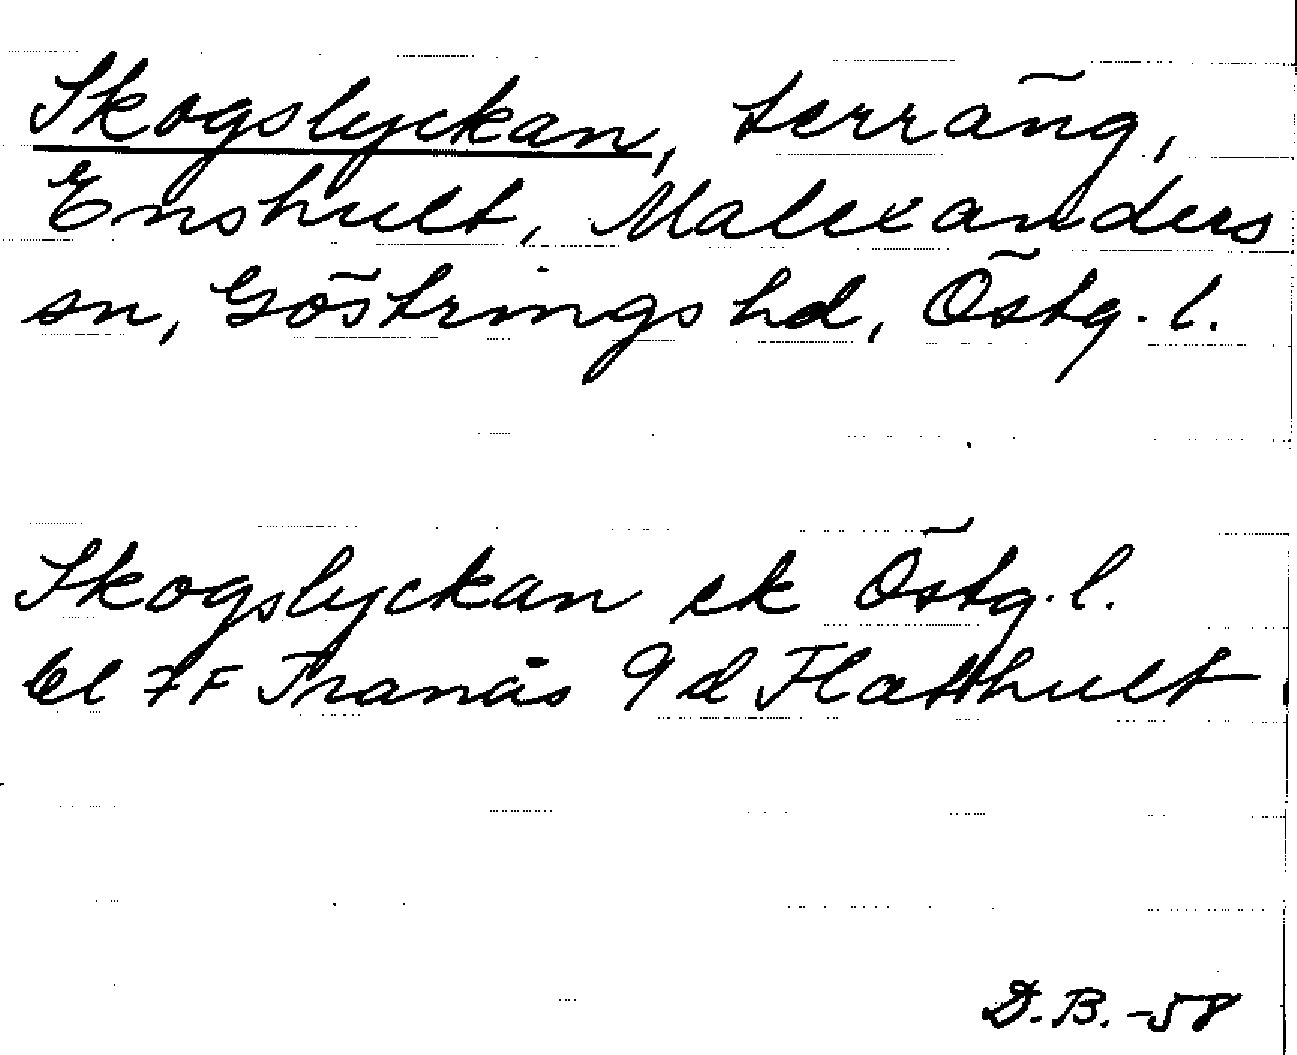 Skogslyckan, terräng,
Enshult, Malexanders
sn, Göstrings hd, Östg. l.
Skogslyckan ek Östg. l.
bl 7 F Tranås 9 d Flatthult
D.B. -58